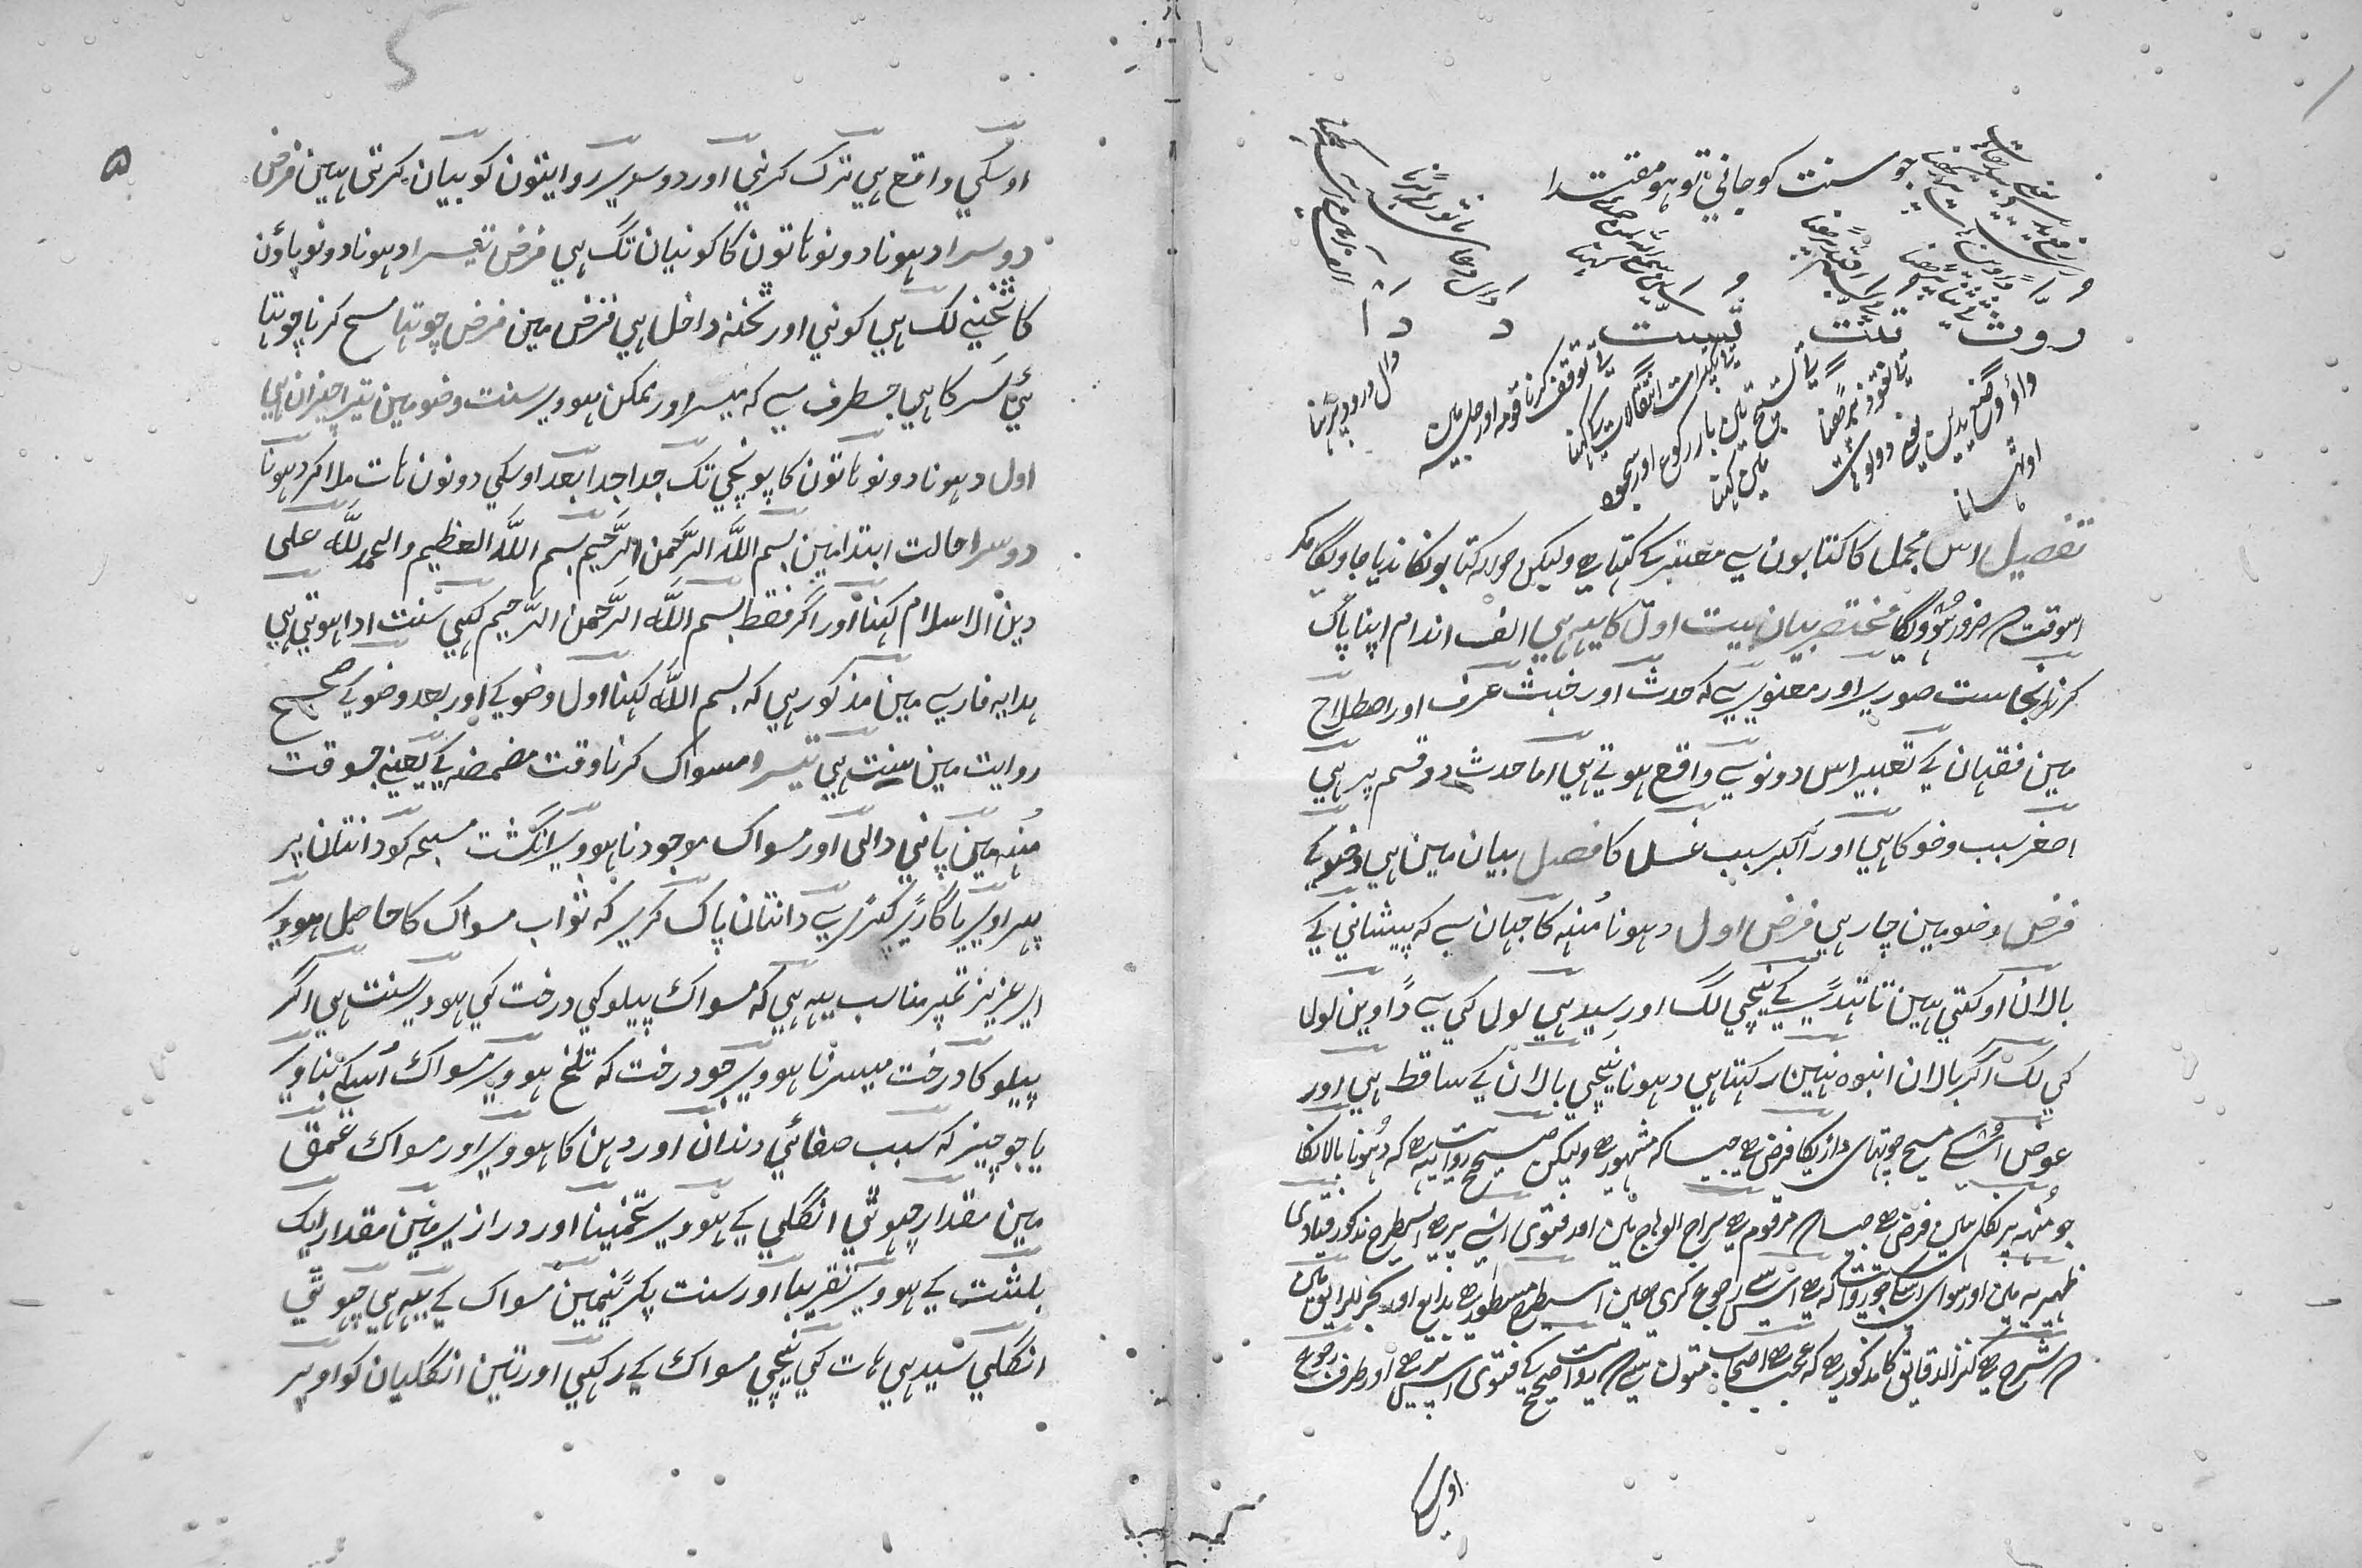 جو سنت کو جانی تو ہو مقتدا
رُوِّثْ تلثت تُسِسَّت دَ دَ اَ
تفصیل اس مجمل کا کتابون سی معتبر کے کہتا ہے ولیکن حوالہ کتابونکا ندیا جاویگا مگر
اسوقت م ضرور ہوویگا مختصر بیان بیت اول کا یہہ ہی الف اندام اپنا پاک
کرنا نجاست صوری اور معنوی سے کہ حدث اور خبث عرف اور اصطلاح
مین فقہان کے تعبیر اس دونو سے واقع ہوتے ہی اما حدث دو قسم پر ہی
اصغر سبب وضو کا ہی اور اکبر سبب غسل کا فصل بیان مین ہی وضو کے
فرض وضو مین چار ہی فرض اول دہونا مُنہہ کا جہان سے کہ پیشانی کے
بالان اوکتی ہین تا تہڈی کے نیچی لگ اور سیدہی لولی کی سے ڈاوین لولی
کی لگ اگر بالان انبوہ نہین رکہتا ہی دہونا نیچی بالان کے ساقط ہی اور
عوض اوسکے مسح چوتہای داڑیکا فرض ہے جیسا کہ مشہور ہے ولیکن صحیح روایت یہ ہے کہ دُہونا بالانکا
جو مُنہہ پر نکلے ہین فرض ہے جیسا م مرقوم ہے سراج الوہاج مین اور فتوی اسی پر ہے اسیطرح مذکور فتاوی
ظہیریہ مین اور سوای اسکا جو روایت کہ ہے اس سے رجوع کری ہین اسیطرح مسطور ہے بدایع اور بحر الرایق مین
م شرح ہے کنز الدقایق کا مذکور ہے کہ عجب ہے اصحاب متون سے م روایت صحیح کے فتوی اسپر ہے اور طرف رجوع
اوسکی
۵
اوسکی واقع ہی ترک کرنی اور دوسری روایتون کو بیان کرتی ہین فرض
دوسرا دہونا دونو ہاتون کا کونیان تگ ہی فرض تیسرا دہونا دونو پاؤن
کا ٹخنی لگ ہی کونی اور ٹخنہ داخل ہی فرض مین فرض چوتہا مسح کرنا چوتہا
ئی سَر کا ہی جسطرف سے کہ میسر اور ممکن ہووی سنت وضو مین تیرا چیزان ہی
اول دہونا دونو ہاتون کا پونچی تک جدا جدا بعد اوسکی دونون ہات ملا کر دہونا
دوسرا حالت ابتدا مین بسم اللَّه الرَّحمن الرَّحیم بسم اللَّه العظیم والحمد للَّه علی
دین الاسلام کہنا اور اگر فقط بسم اللَّه الرَّحمن الرَّحیم کہی سنت ادا ہوتی ہی
ہدایہ فارسی مین مذکور ہی کہ بسم اللَّه کہنا اول وضو کے اور بعد وضو کے صحیح
روایت مین سنت ہی تیسرا مسواک کرنا وقت مضمضہ کے یعنے جسوقت
مُنہہ مین پانی دالی اور مسواک موجود نا ہووی انگشت مسبحہ کو دانتان پر
پہراوی یا گاڑی کپڑی سے دانتان پاک کری کہ ثواب مسواک کا حاصل ہووی
ای عزیز تمپر مناسب یہہ ہی کہ مسواک پیلو کی درخت کی ہووی سنت ہی اگر
پیلو کا درخت میسر نا ہووی جو درخت کہ تلخ ہووی مسواک اُسکی بناوی
یا جو چیز کہ سبب صفائی دندان اور دہن کا ہووی اور مسواک عمق
مین مقدار چہوٹی انگلی کے ہووی تخمینا اور درازی مین مقدار ایک
بلشت کے ہووی تقریبا اور سنت پکڑنیمین مسواک کے یہہ ہی چہوٹی
انگلی سیدہی ہات کی نیچی مسواک کے رکہی اور تین انگلیان کو اوپر